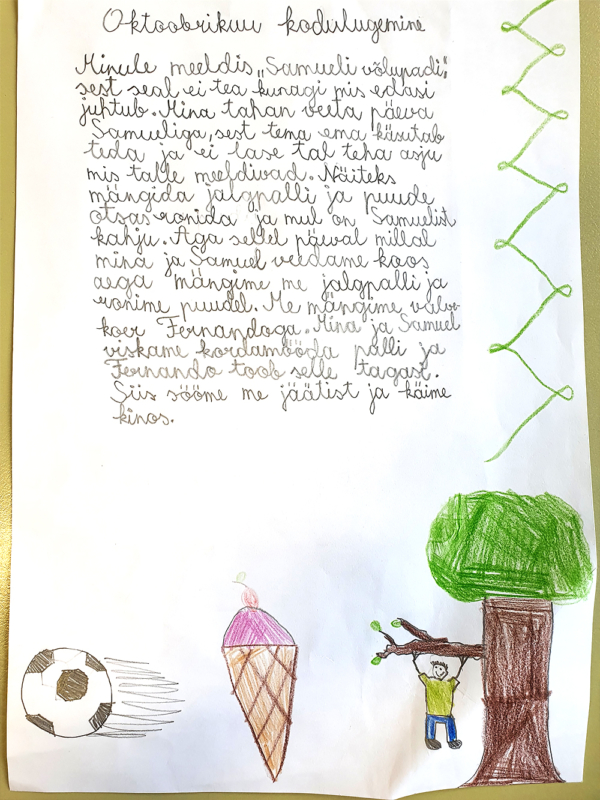 Oktoobrikuu kodulugemine
Minule meeldis „Samueli võlupadi",
sest seal ei tea kunagi mis edasi
juhtub. Mina tahan veeta päeva
Samueliga, sest tema ema käsutab
teda ja ei lase tal teha asju
mis talle meeldivad. Näiteks
mängida jalgpalli ja puude
otsas ronida ja mul on Samuelist
kahju. Aga sellel päeval millal
mina ja Samuel veedame koos
aega mängime me jalgpalli ja
ronime puudel. Me mängime valve
koer Fernandoga. Mina ja Samuel
viskame kordamööda palli ja
Fernando toob selle tagasi.
Siis sööme me jäätist ja käime
kinos.